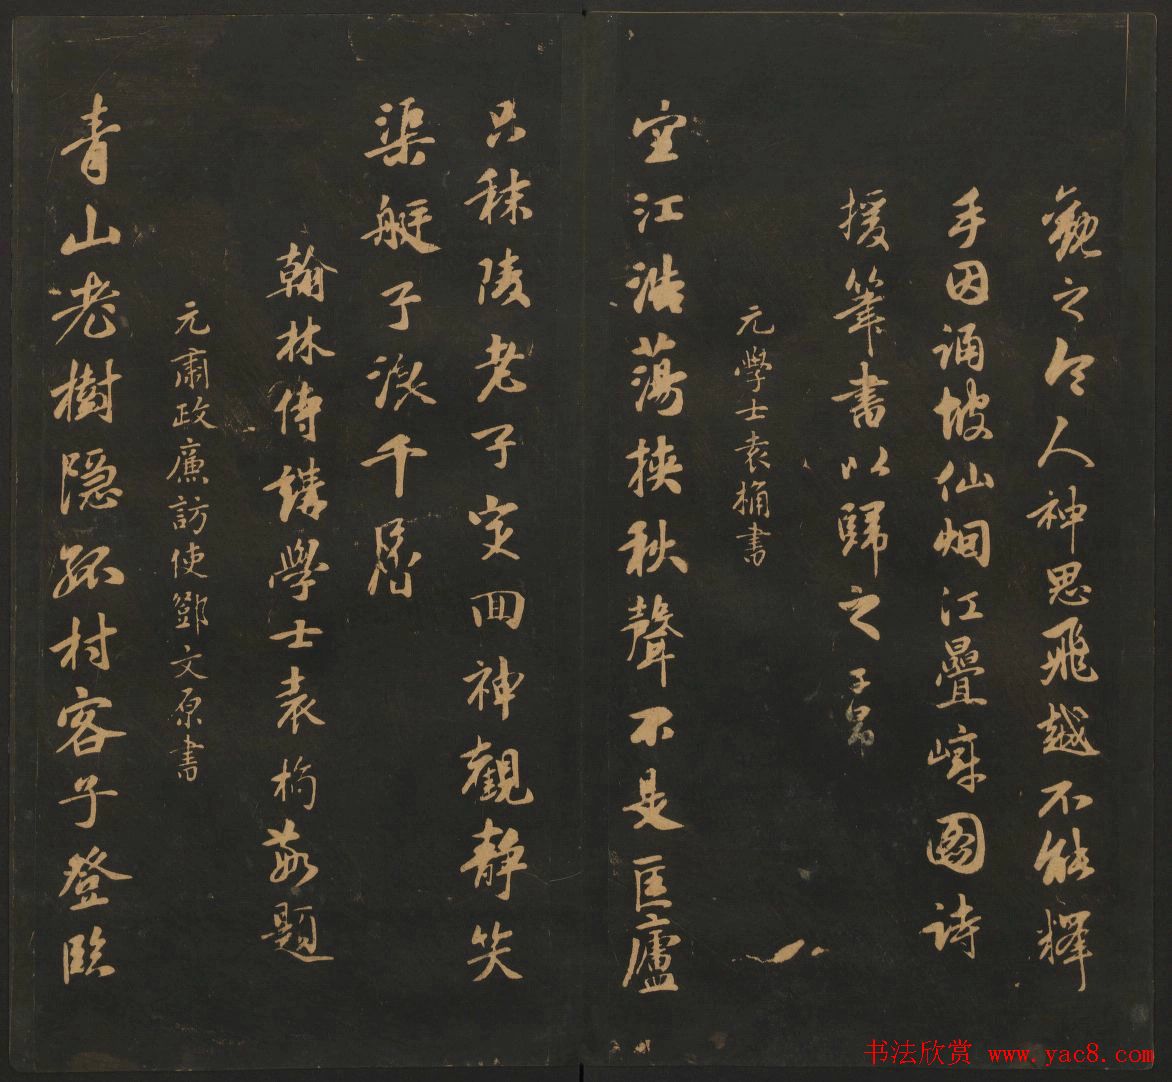 觀之令人神思飛越不能釋
手因誦坡仙烟江疊嶂圖詩
援筆書以歸之 子昂
元學士袁桷書
空江浩蕩挾秋聲不是匡廬
只秣陵老子定回神觀靜笑
渠艇子浪千層
翰林侍講學士袁桷敬題
元肅政廉訪使鄧文原書
青山老樹隱孤村客子登臨
书法欣赏 www.yac8.com